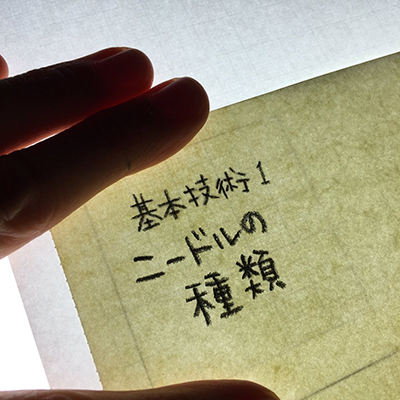 基本技術1
ニードルの
種類